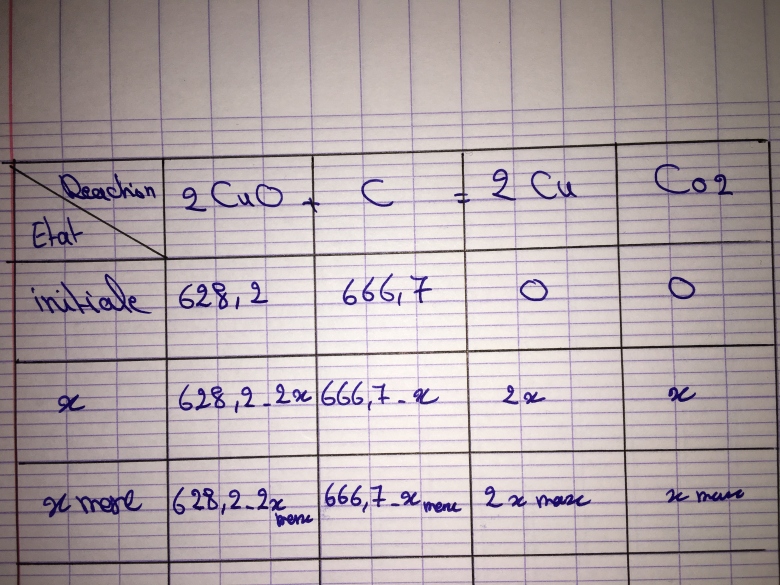 Reaction
Etat
2 CuO + C = 2 Cu Co2
initiale 628,2 666,7 0 0
x 628,2-2x 666,7-x 2x x
x max 628,2-2x max 666,7-x max 2x max x max